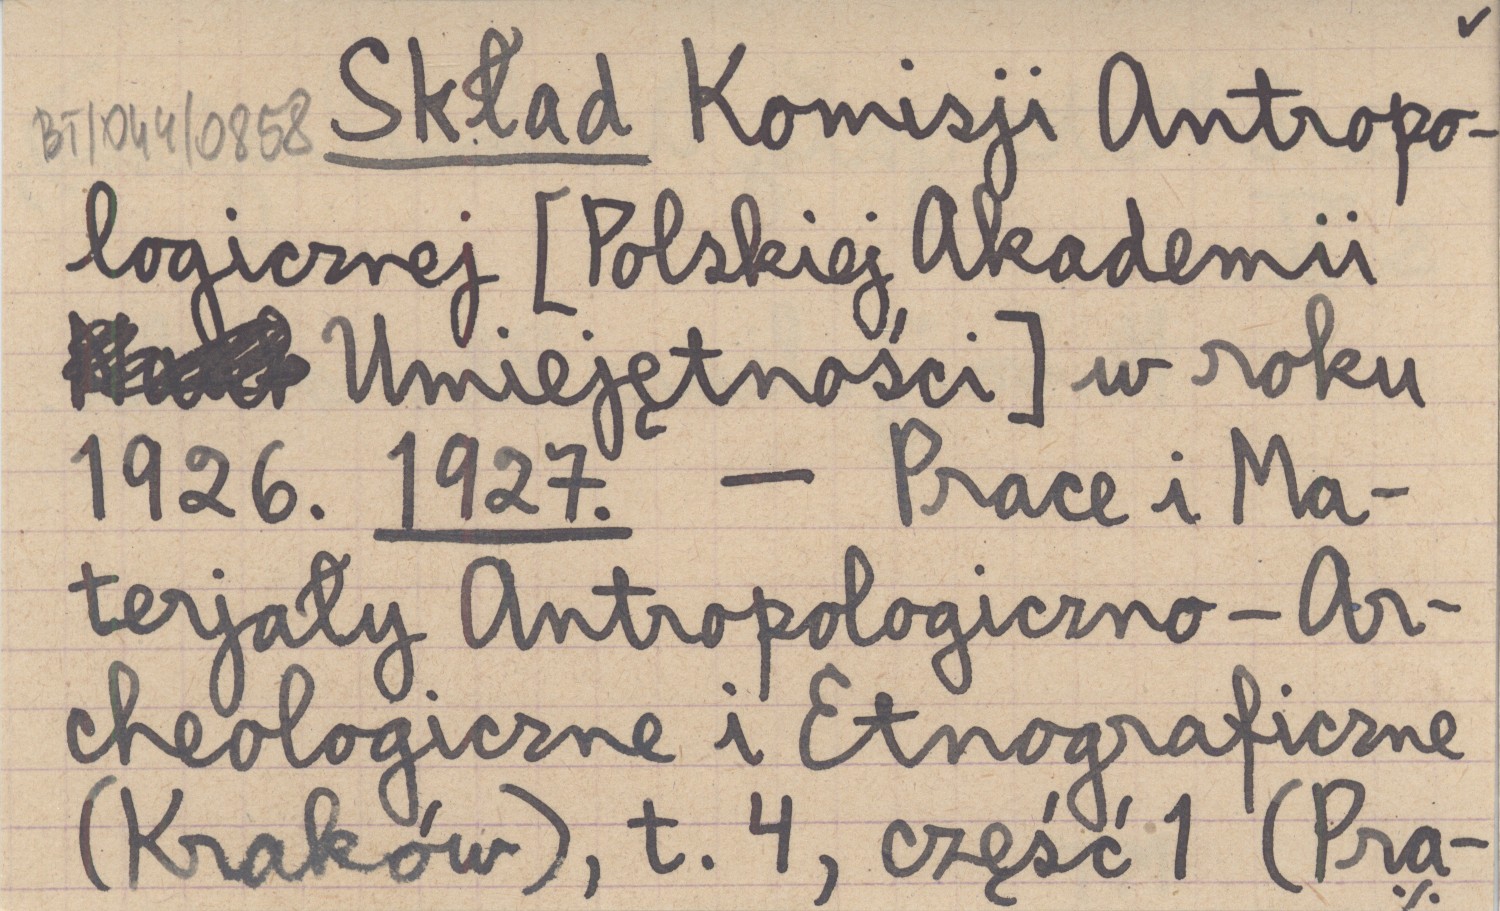 BT/044/0858 Skład Komisji Antropo-
logicznej [Polskiej Akademii
Umiejętności] w roku
1926. 1927. — Prace i Ma-
terjały Antropologiczno-Ar-
cheologiczne i Etnograficzne
(Kraków), t. 4, część 1 (Pra-
./.